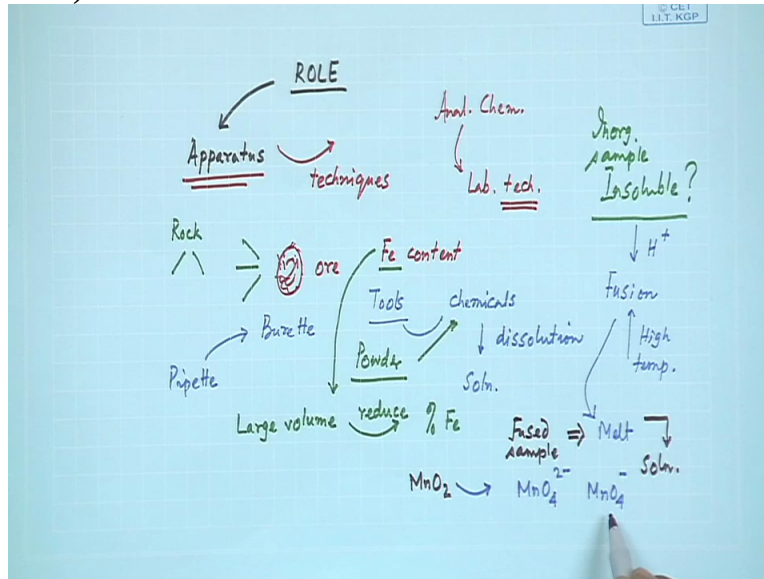 © CET
I.I.T. KGP
ROLE
Apparatus
techniques
Anal. Chem.
Lab. tech.
Inorg.
sample
Insoluble?
H+
Fusion
High
temp.
Rock
ore
Fe content
Tools
chemicals
dissolution
Soln.
Powder
Burette
Pipette
Large volume
reduce
% Fe
Fused
sample
⇒ Melt
Soln.
MnO2
MnO4 2-
MnO4 -